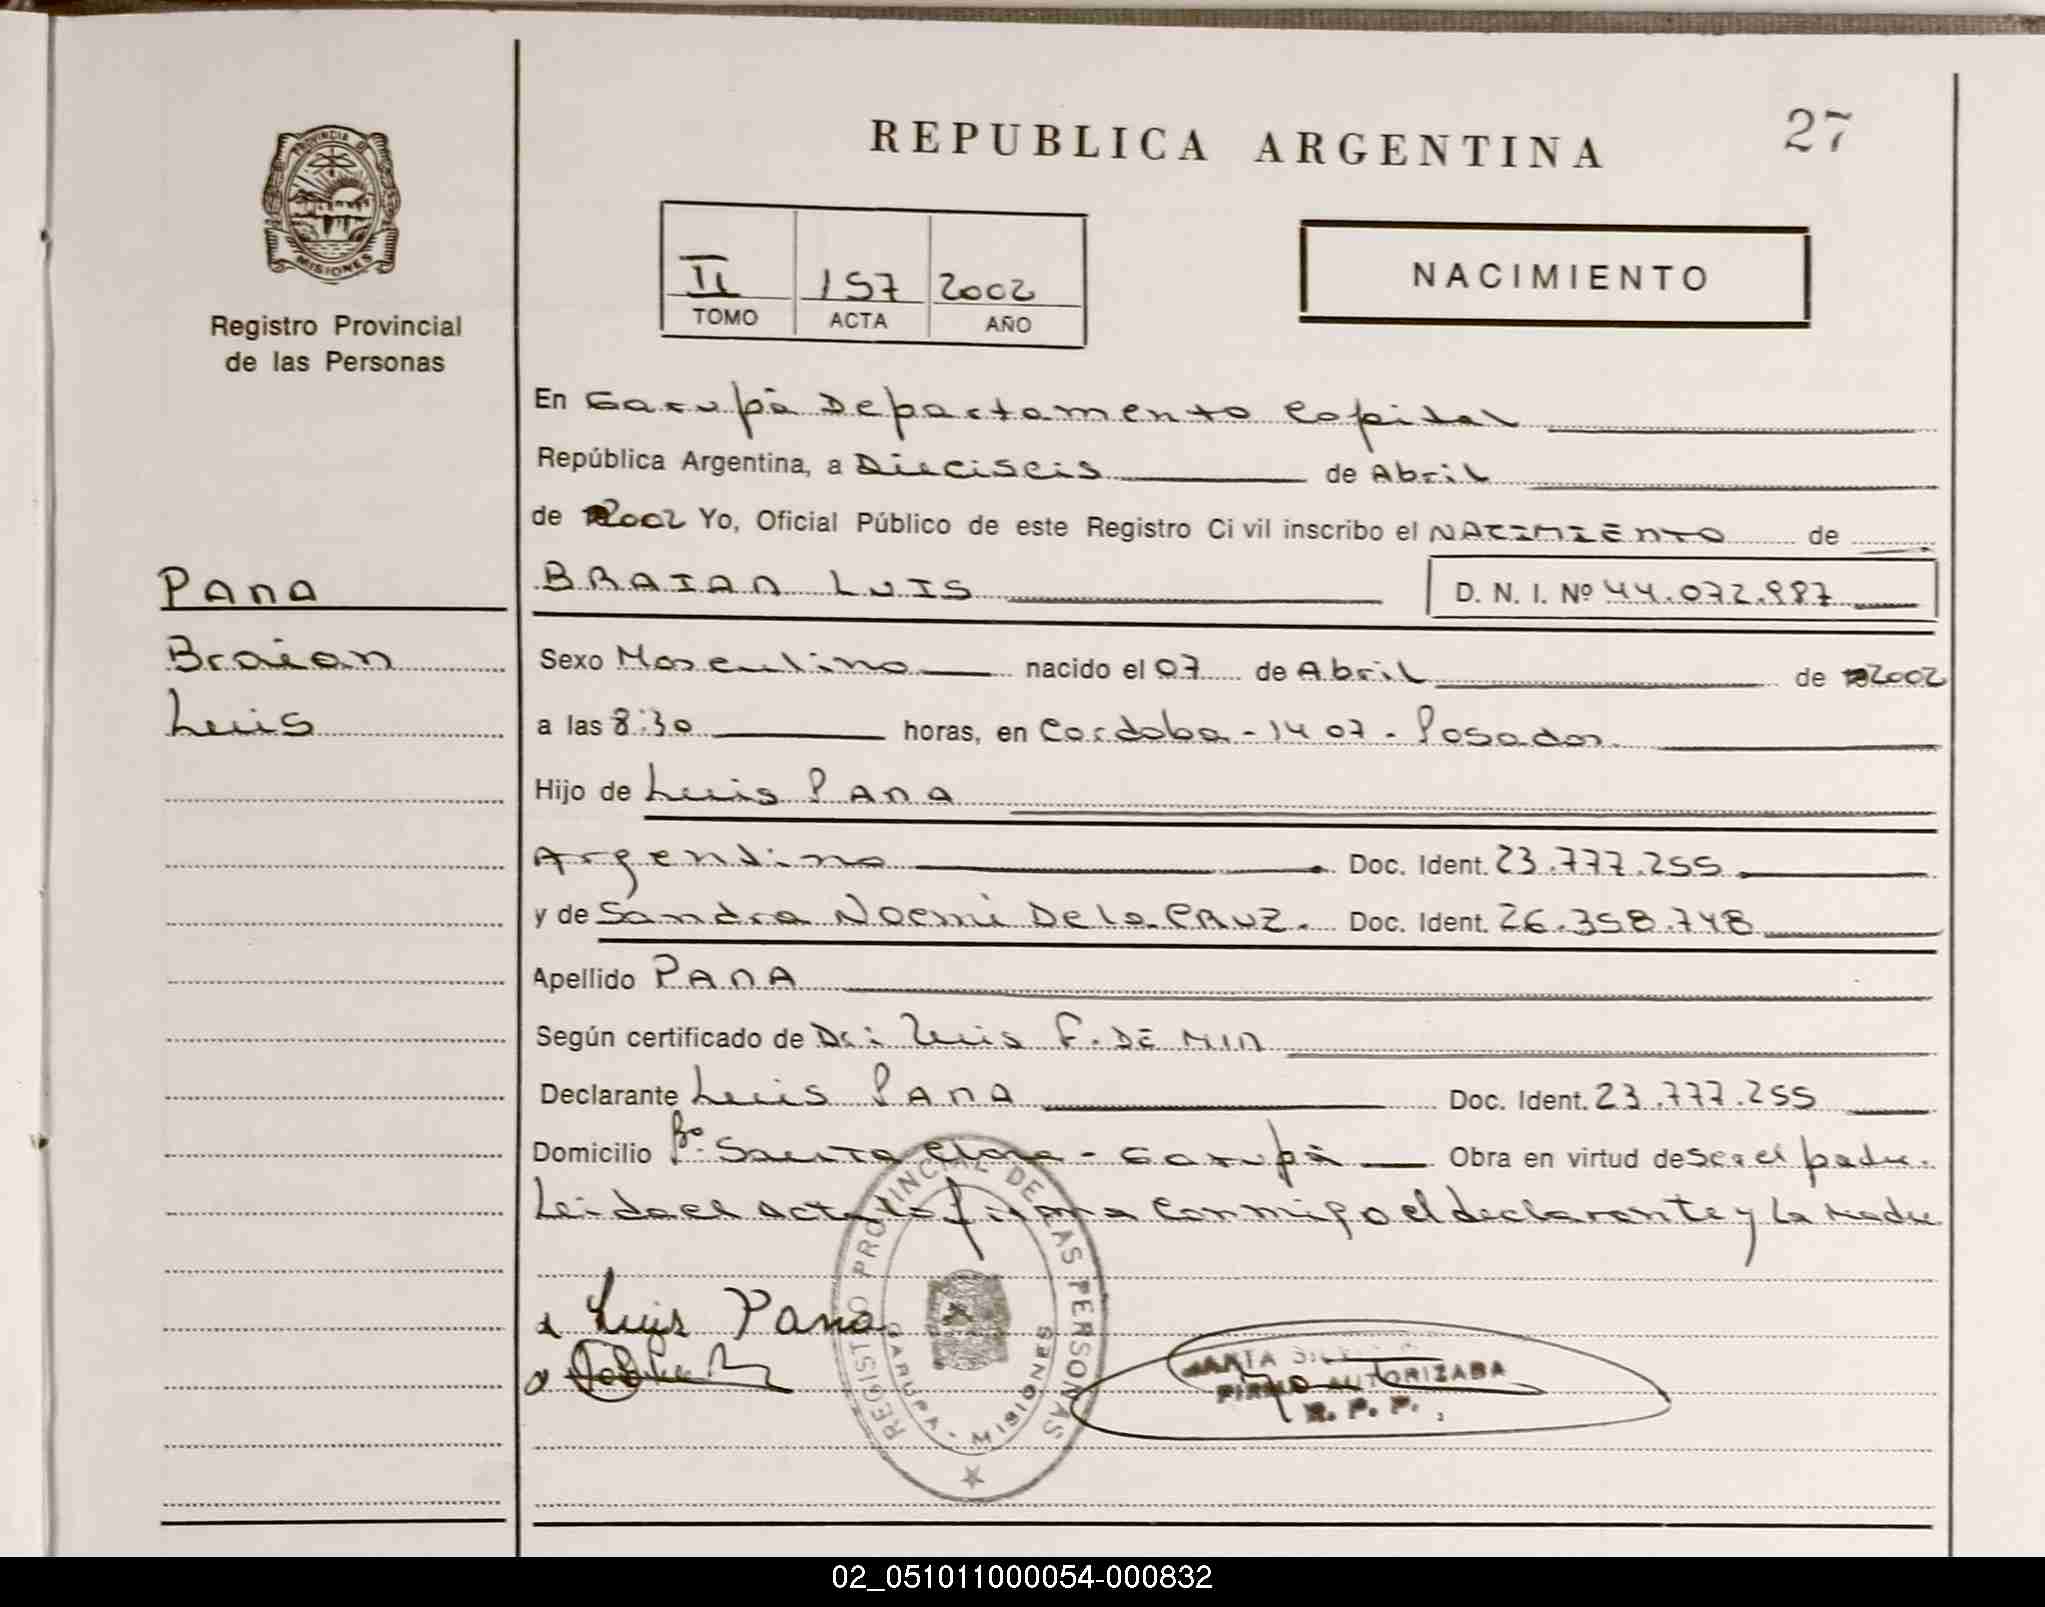 REPUBLICA ARGENTINA
27
PROVINCIA DE
MISIONES
Registro Provincial
de las Personas
II 157 2002
TOMO ACTA AÑO
NACIMIENTO
En Garupá Departamento Capital
República Argentina, a Dieciseis de Abril
de 2002 Yo, Oficial Público de este Registro Civil inscribo el NACIMIENTO de
Pana
Braian
Luis
BRAIAN LUIS D. N. I. Nº 44.072.987
Sexo Masculino nacido el 07 de Abril de 2002
a las 8:30 horas, en Cordoba - 1407 - Posadas
Hijo de Luis Pana
Argentino Doc. Ident. 23.777.255
y de Sandra Noemi De la CRUZ. Doc. Ident. 26.358.748
Apellido PANA
Según certificado de Dr: Luis F. DE MIN
Declarante Luis Pana Doc. Ident. 23.777.255
Domicilio Bº Santa Clara - Garupá Obra en virtud de ser el padre.
Leida el acta la firma conmigo el declarante y La Madre
Luis Pana
REGISTRO PROVINCIAL DE LAS PERSONAS
GARUPA - MISIONES
FIRMA AUTORIZADA
R. P. P.
02_051011000054-000832